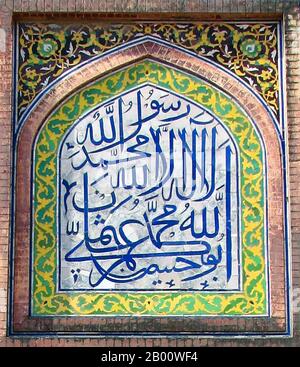 لا اله الا الله محمد رسول الله
الله محمد
ابوبكر عمر عثمان علي
حسن حسين
alamy
Image ID: 2B00WF4
www.alamy.com